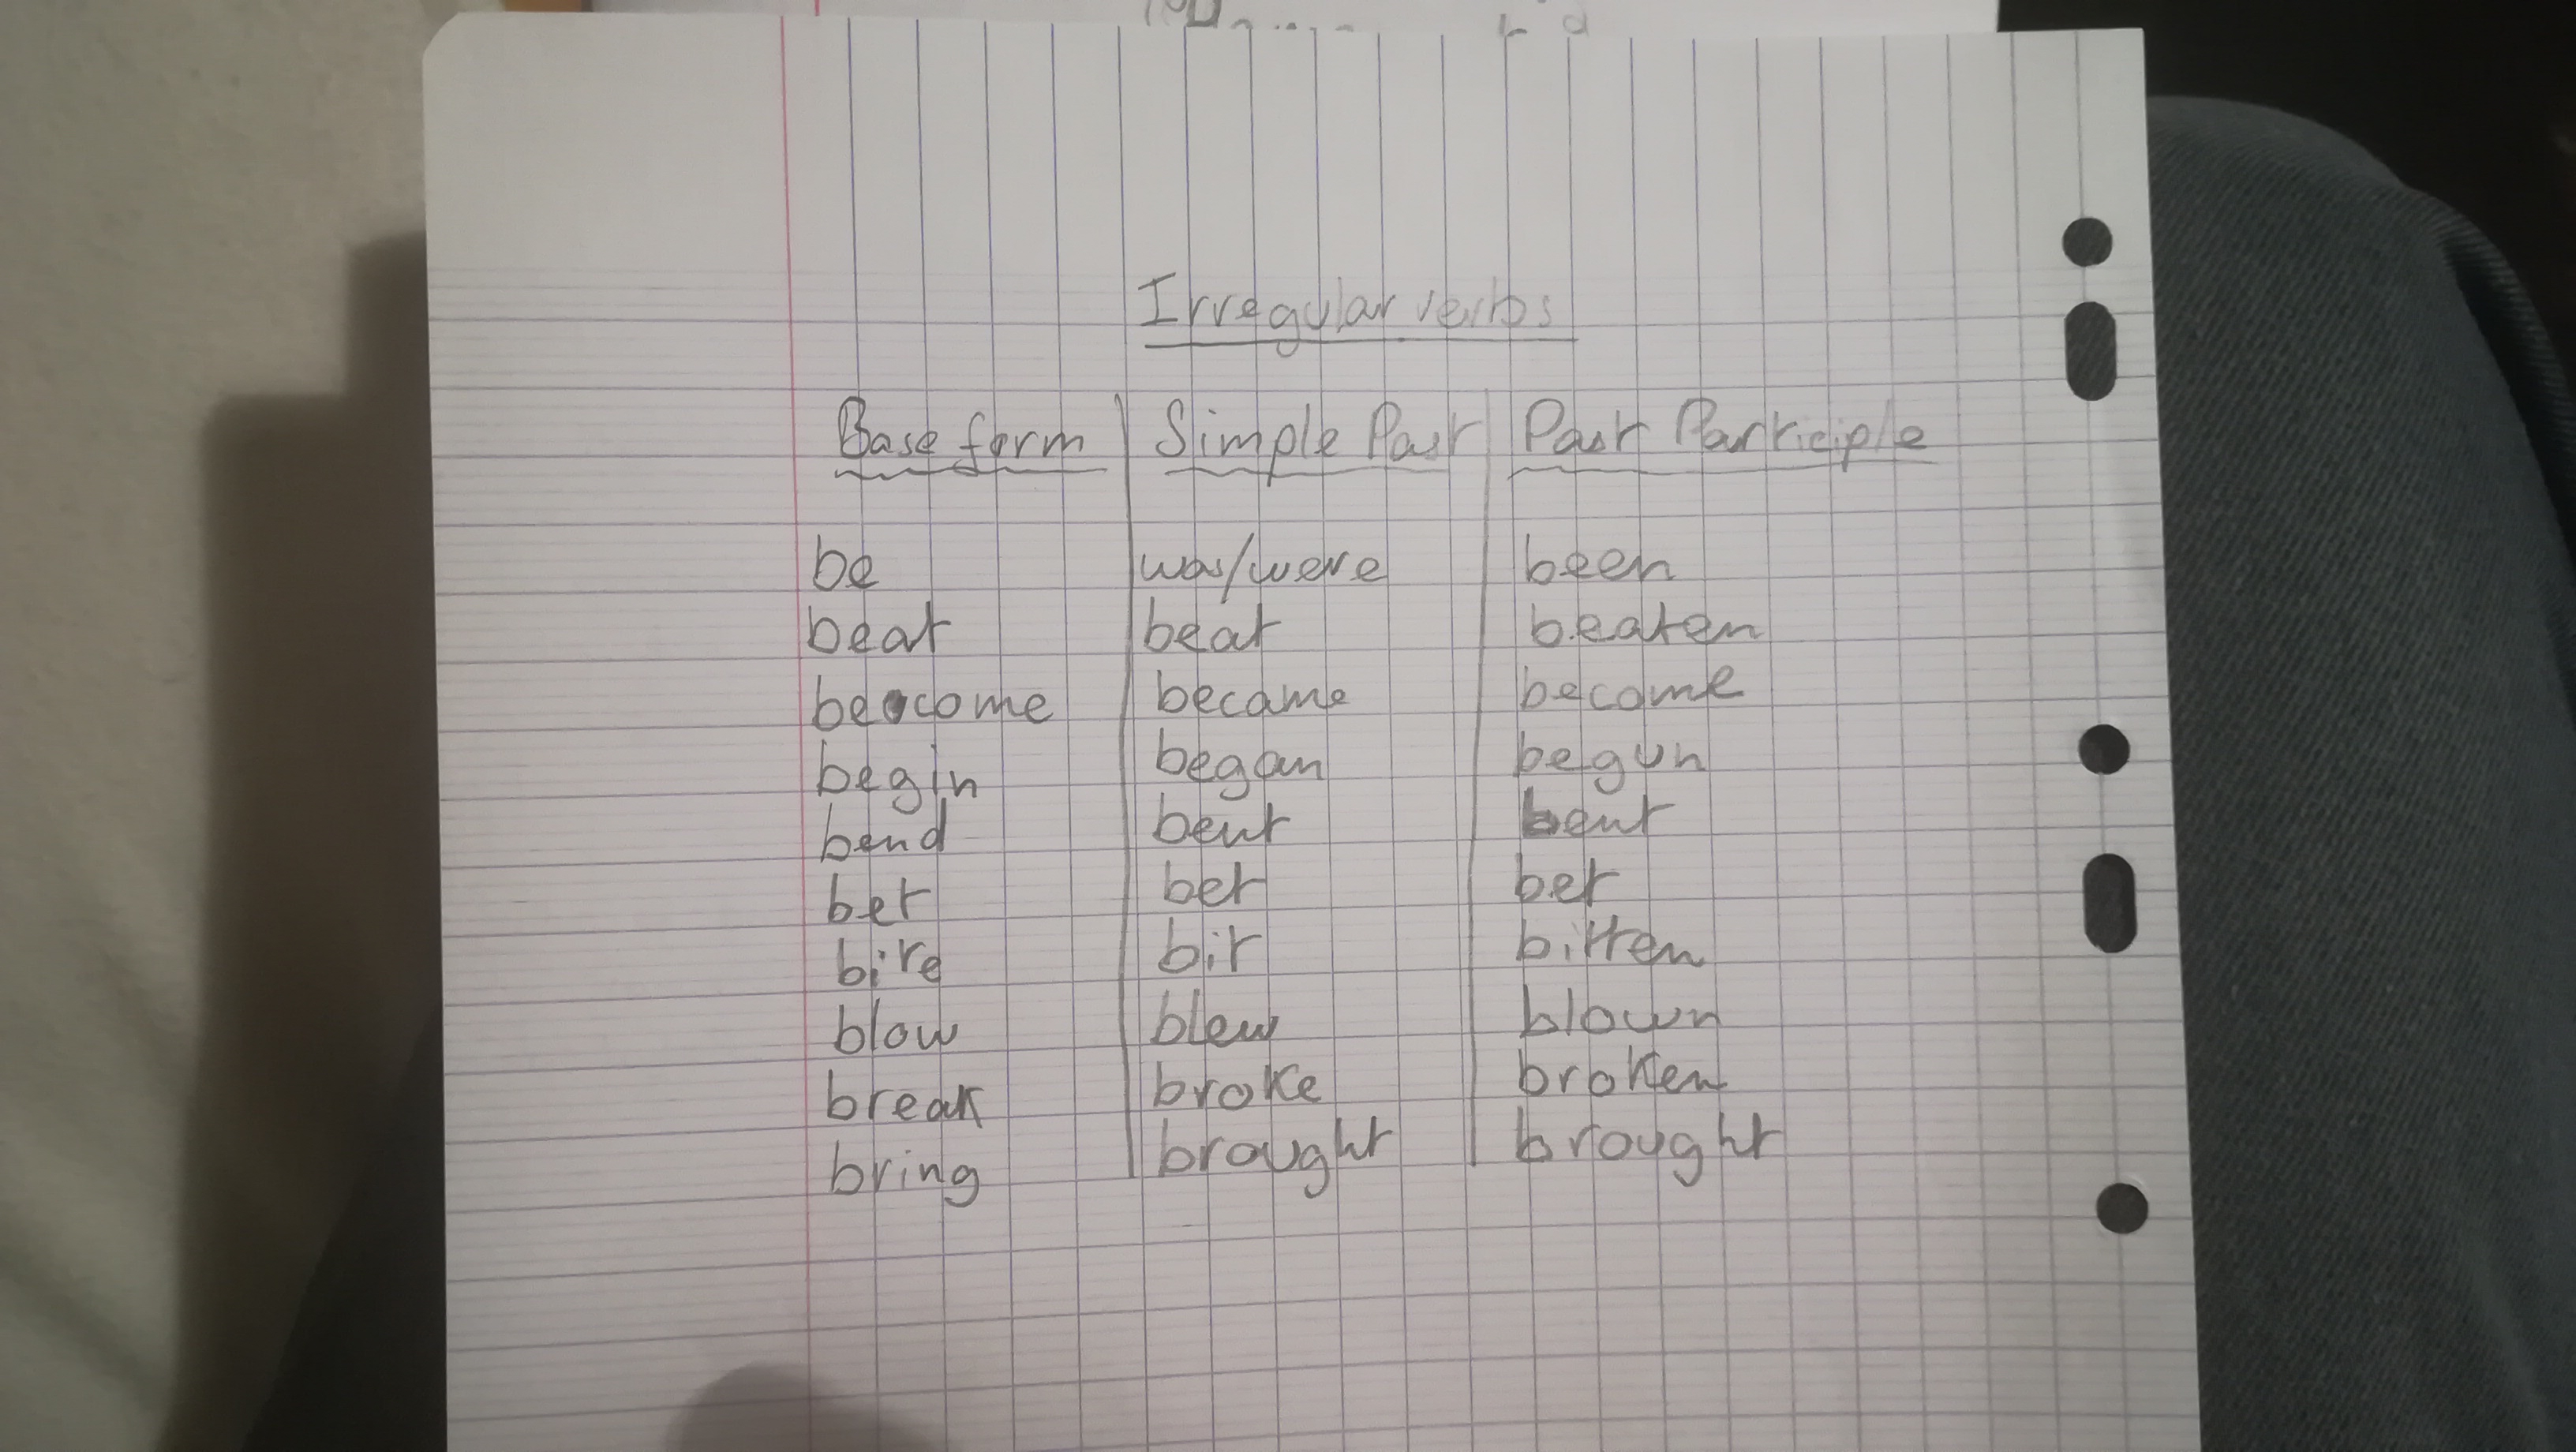 Irregular verbs
Base form Simple Past Past Participle
be was/were been
beat beat beaten
become became become
begin began begun
bend bent bent
bet bet bet
bite bit bitten
blow blew blown
break broke broken
bring brought brought